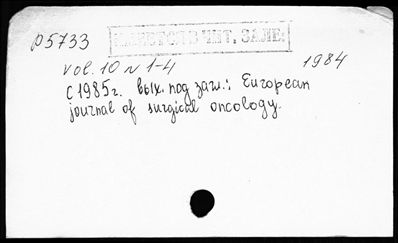 р5733
ИМЕЕТСЯ В ЧИТ. ЗАЛЕ.
Vol. 10 N 1-4 1984
С 1985г. вых. под загл.: European
journal of surgical oncology.